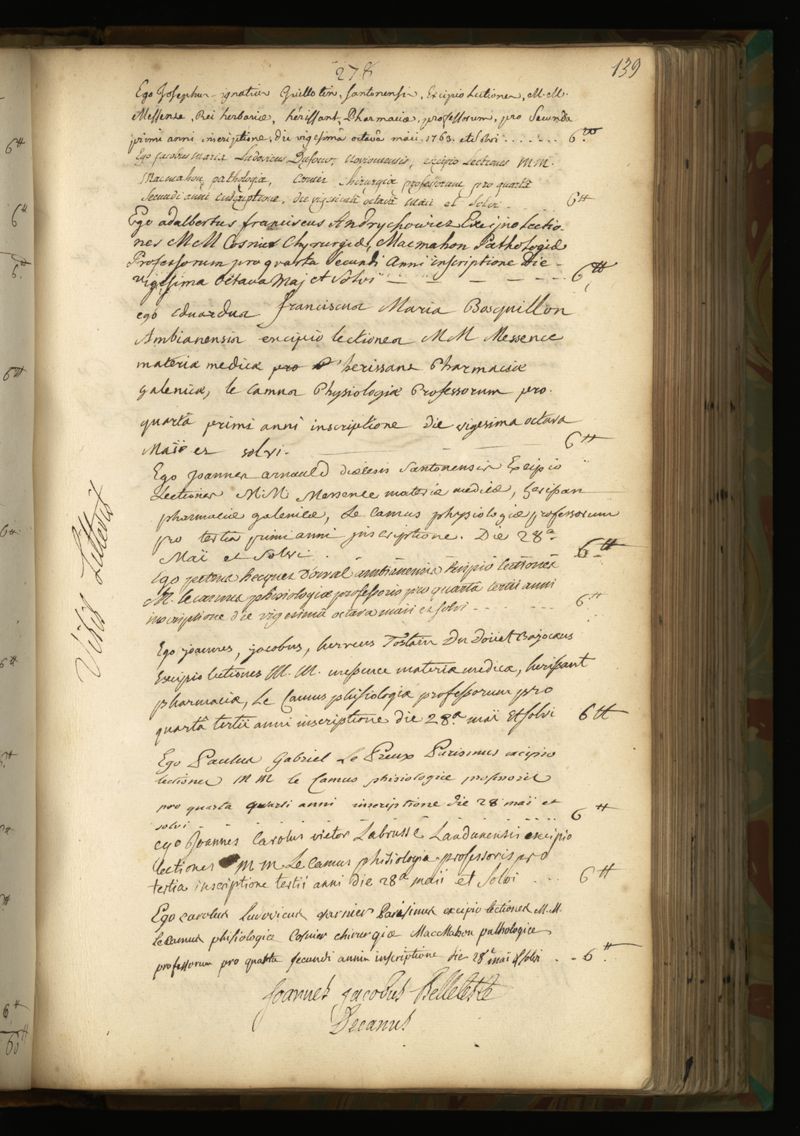 278
139
Ego Josephus-ignatius Guillotin, Santonensis, Excipio Lectiones, M.M.
Messence, Rei herbariæ, hérissant, Pharmaciæ, professorum, pro Secunda
primi anni inscriptione, die vigesimâ octavâ maii, 1763. et solvi ....... 6.tt
Ego jacobus maria Ludovicus Noviomensis, excipio Lectiones MM.
Macmahon pathologiæ, Cosnier chirurgiæ professorum pro quartâ
secundi anni inscriptione, die vigesimâ octavâ maii et solvi. 6tt
Ego adalbertus franciscus Andrychowiez Excipio Lectio-
nes M M Cosnier Chyrurgiæ, Macmahon Pathologiæ
Professorum pro quarta Secundi Anni inscriptione Die
vigesima Octava Maj et Solvi 6tt
ego eduardus franciscus Maria Bosquillon
Ambianensis excipio lectiones MM Messence
materiæ medicæ herissant Pharmaciæ
galenicæ, le camus Physiologiæ Professorum pro
quarta primi anni inscriptione die vigesima octava
Maii et solvi. 6tt
Ego Joannes arnauld diœcesis Santonensis Excipio
Lectiones MM Messence materiæ medicæ,
pharmaciæ galenicæ, Le Camus physiologiæ professorum
pro tertia primi anni inscriptione. Die 28a.
Maii et Solvi. 6tt
Ego petrus hecquet ambianensis Excipio lectiones
M. le camus phisiologiæ professoris pro quarta tertii anni
inscriptione die vigesima octava maii et solvi 6tt
Ego joannes, jacobus, herveus Tostain Du Douet Bajocæus
Excipio lectiones M. M. messence materiæ medicæ, herissant
pharmaciæ, Le Camus phisiologiæ professorum pro
quartâ tertii anni inscriptione die 28a maii et solvi 6tt
Ego Paulus Gabriel Le Preux Parisinus excipio
lectiones M M le Camus phisiologiæ professoris
pro quarta quarti anni inscriptione die 28 maii et
solvi 6tt
ego Joannes Carolus victor Labrusse Laudunensis excipio
lectiones M M Le Camus phisiologia professoris pro
tertia inscriptione tertii anni die 28a maii et solvi ... 6tt
Ego carolus Ludovicus varnier Parisinus excipio lectiones M.M.
Le camus phisiologiæ Cosnier chirurgiæ MacMahon pathologiæ
professorum pro quarta secundi anni inscriptione die 28a maii et solvi .. 6tt
Joannes Jacobus Belleteste
Decanus